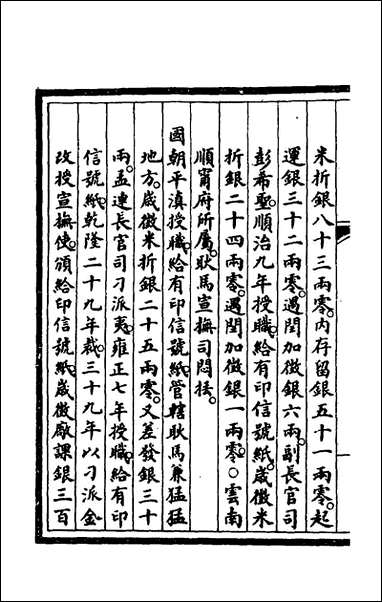 米折銀八十三兩零內存留銀五十一兩零起
運銀三十二兩零遇閏加徵銀六兩副長官司
彭希聖順治九年授職給有印信號紙歲徵米
折銀二十四兩零遇閏加徵銀一兩零○雲南
順甯府所屬耿馬宣撫司罕悶擡
國朝平滇授職給有印信號紙管轄耿馬兼猛猛
地方歲徵米折銀二十五兩零又差發銀三十
兩孟連長官司刁派夷雍正七年授職給有印
信號紙乾隆二十九年裁三十九年以刁派金
改授宣撫使頒給印信號紙歲徵廠課銀三百